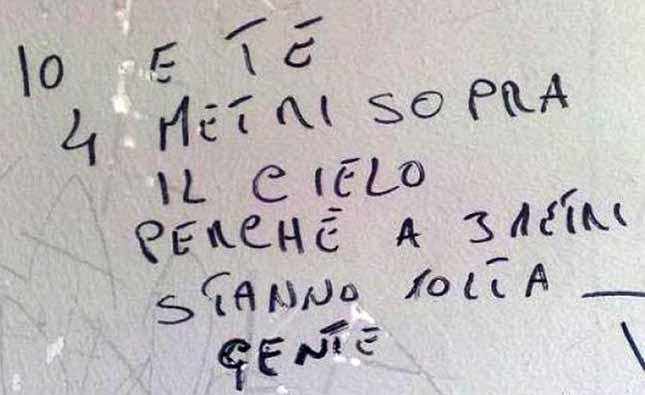 IO E TE
4 METRI SOPRA
IL CIELO
PERCHÉ A 3 METRI
STANNO MOLTA
GENTE